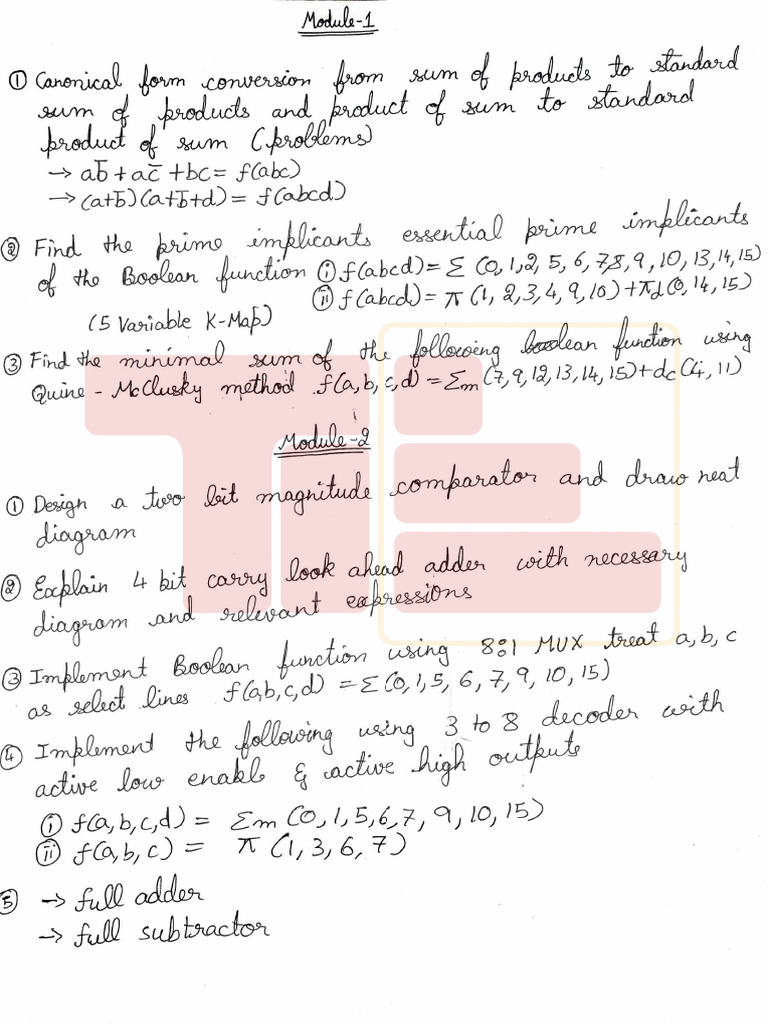 Module-1
① Canonical form conversion from sum of products to standard
sum of products and product of sum to standard
product of sum (problems)
→ ab̅ + ac̅ + bc = f(abc)
→ (a+b̅)(a+b̅+d) = f(abcd)
② Find the prime implicants essential prime implicants
of the Boolean function ⓘ f(abcd) = Σ (0,1,2,5,6,7,8,9,10,13,14,15)
ⓘⓘ f(abcd) = π (1,2,3,4,9,10) + πd (0,14,15)
(5 Variable K-Map)
③ Find the minimal sum of the following boolean function using
Quine - McClusky method f(a,b,c,d) = Σm (7,9,12,13,14,15) + dc (4,11)
Module-2
① Design a two bit magnitude comparator and draw neat
diagram
② Explain 4 bit carry look ahead adder with necessary
diagram and relevant expressions
③ Implement Boolean function using 8:1 MUX treat a, b, c
as select lines f(a,b,c,d) = Σ (0,1,5,6,7,9,10,15)
④ Implement the following using 3 to 8 decoder with
active low enable & active high outputs
ⓘ f(a,b,c,d) = Σm (0,1,5,6,7,9,10,15)
ⓘⓘ f(a,b,c) = π (1,3,6,7)
⑤ → full adder
→ full subtractor